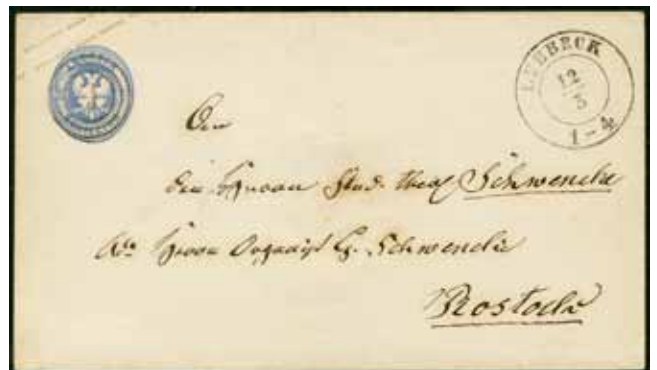 LUEBECK
12
5
1-4
An
den Herrn Stud. theol Schwencke
Herrn Organist Schwencke
Rostock